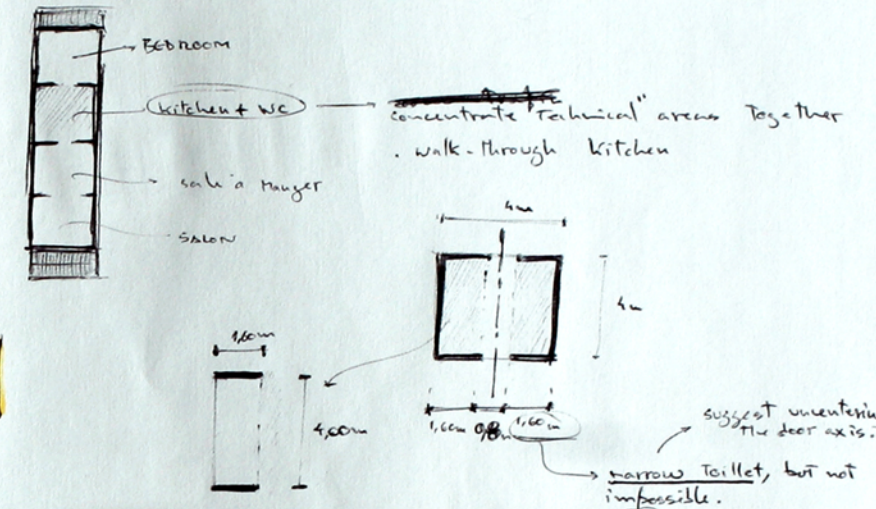 BEDROOM
kitchen + WC
concentrate "Technical" areas Together
. walk-Through kitchen
salle à Manger
SALON
4m
4m
1,60m
4,00m
1,60m 0,8m 1,60m
suggest uncentering
The door axis.
narrow Toillet, but not
impossible.